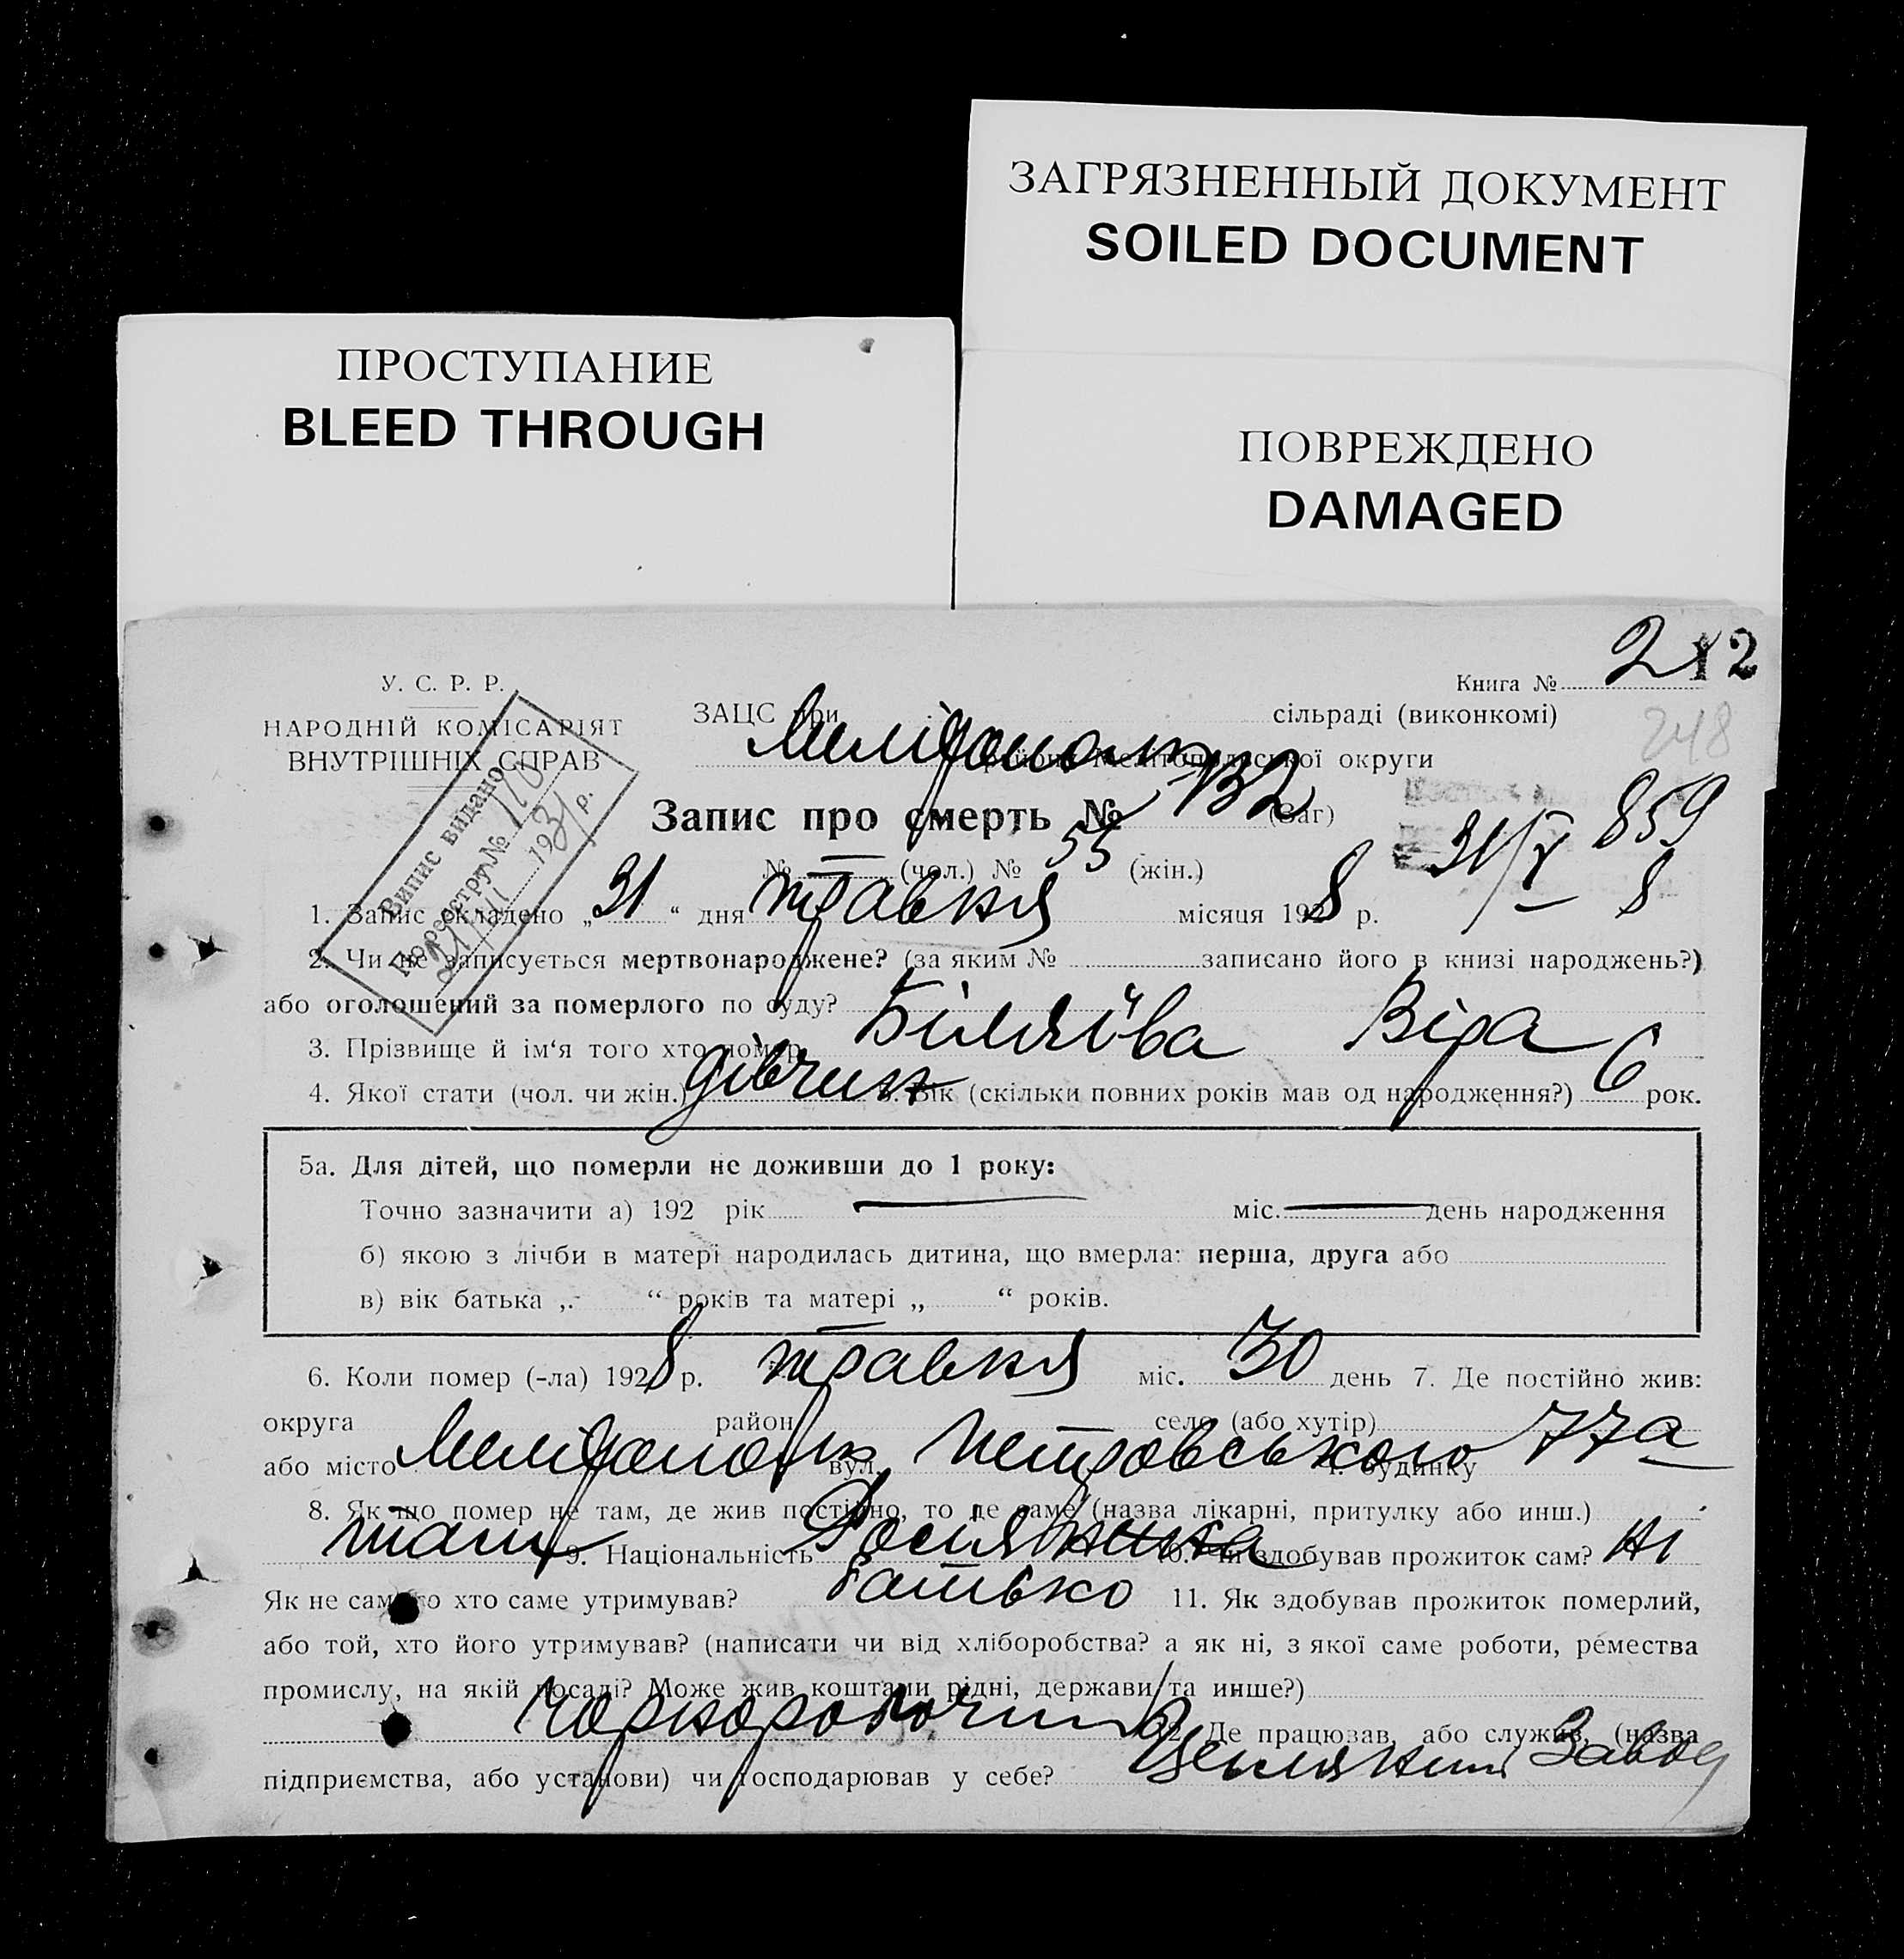 ЗАГРЯЗНЕННЫЙ ДОКУМЕНТ
SOILED DOCUMENT
ПРОСТУПАНИЕ
BLEED THROUGH
ПОВРЕЖДЕНО
DAMAGED
У. С. Р. Р.
НАРОДНІЙ КОМІСАРІЯТ
ВНУТРІШНІХ СПРАВ
Випис видано
По реєстру № 110
21/VI 1931 р.
Книга № 2 12
248
ЗАЦС при сільраді (виконкомі)
Мелітополь району Мелітопільської округи
Запис про смерть № 132 (Заг)
859
№ — (чол.) № 55 (жін.)
31/V 8
1. Запис складено „31“ дня травня місяця 1928 р.
2. Чи не записується мертвонароджене? (за яким № записано його в книзі народжень?)
або оголошений за померлого по суду?
3. Прізвище й ім‘я того хто помер Біляїва Віра
4. Якої стати (чол. чи жін.) дівчин 5. Вік (скільки повних років мав од народження?) 6 рок.
5а. Для дітей, що померли не доживши до 1 року:
Точно зазначити а) 192 рік — міс. — день народження
б) якою з лічби в матері народилась дитина, що вмерла: перша, друга або
в) вік батька „ “ років та матері „ “ років.
6. Коли помер (-ла) 1928 р. травня міс. 30 день 7. Де постійно жив:
округа район село (або хутір)
або місто Мелітополь вул. Петровського ч. будинку 77а
8. Як що помер не там, де жив постійно, то де саме (назва лікарні, притулку або инш.)
там 9. Національність Росіянка 10. Чи здобував прожиток сам? ні
Як не сам то хто саме утримував? батько 11. Як здобував прожиток померлий,
або той, хто його утримував? (написати чи від хліборобства? а як ні, з якої саме роботи, ремества
промислу, на якій посаді? Може жив коштами рідні, держави та инше?)
Чорноробочий 12. Де працював, або служив, (назва
підприємства, або установи) чи господарював у себе? Цегляний Завод